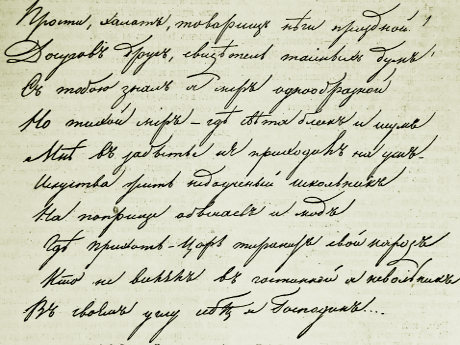 Прости, халатъ, товарищъ нѣги праздной!
Досуговъ другъ, свидѣтель тайныхъ думъ!
Съ тобою зналъ я міръ однообразной
Но тихой міръ – гдѣ свѣта блескъ и шумъ
Мнѣ въ забытьи не приходилъ на умъ.
Искуства жить недоученый школьникъ
На поприще обычаевъ и модъ
Гдѣ прихоть–Царь тиранитъ свой народъ
Кто не бывалъ въ гостинной я невольникъ
Въ своемъ углу себѣ я Господинъ...